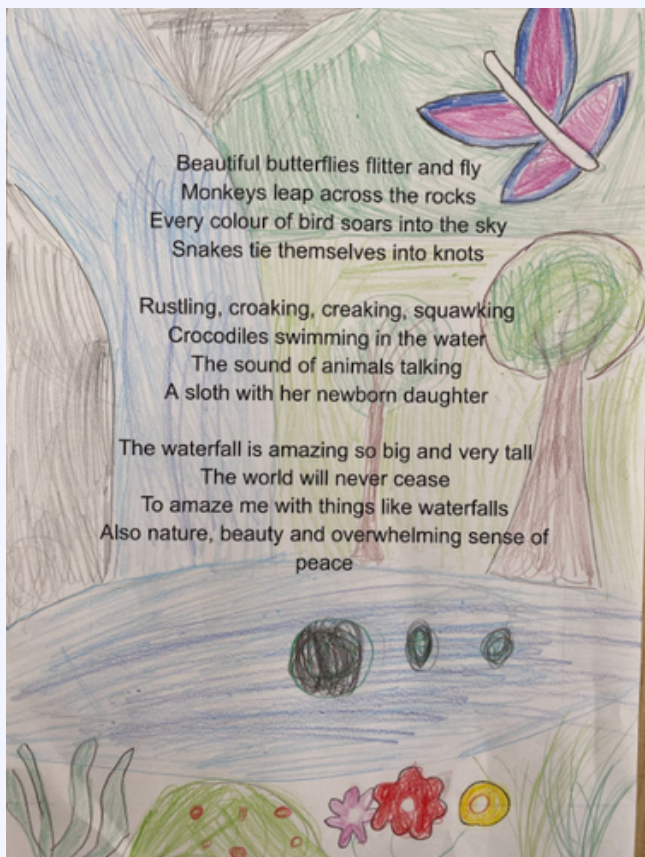 Beautiful butterflies flitter and fly
Monkeys leap across the rocks
Every colour of bird soars into the sky
Snakes tie themselves into knots
Rustling, croaking, creaking, squawking
Crocodiles swimming in the water
The sound of animals talking
A sloth with her newborn daughter
The waterfall is amazing so big and very tall
The world will never cease
To amaze me with things like waterfalls
Also nature, beauty and overwhelming sense of
peace